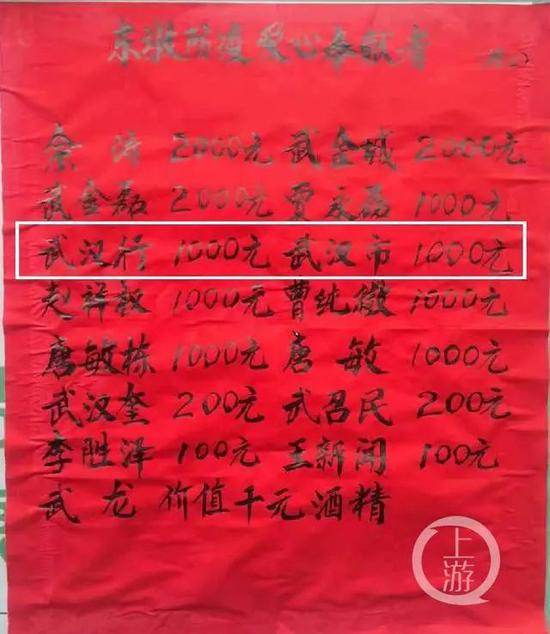 东墩防疫爱心奉献者
余涛 2000元 武金城 2000元
武金磊 2000元 贾永磊 1000元
武汉行 1000元 武汉市 1000元
赵祥敏 1000元 曹纯傲 1000元
唐敏栋 1000元 唐敏 1000元
武汉奎 200元 武召民 200元
李胜泽 100元 王新闻 100元
武龙 价值千元酒精
上游